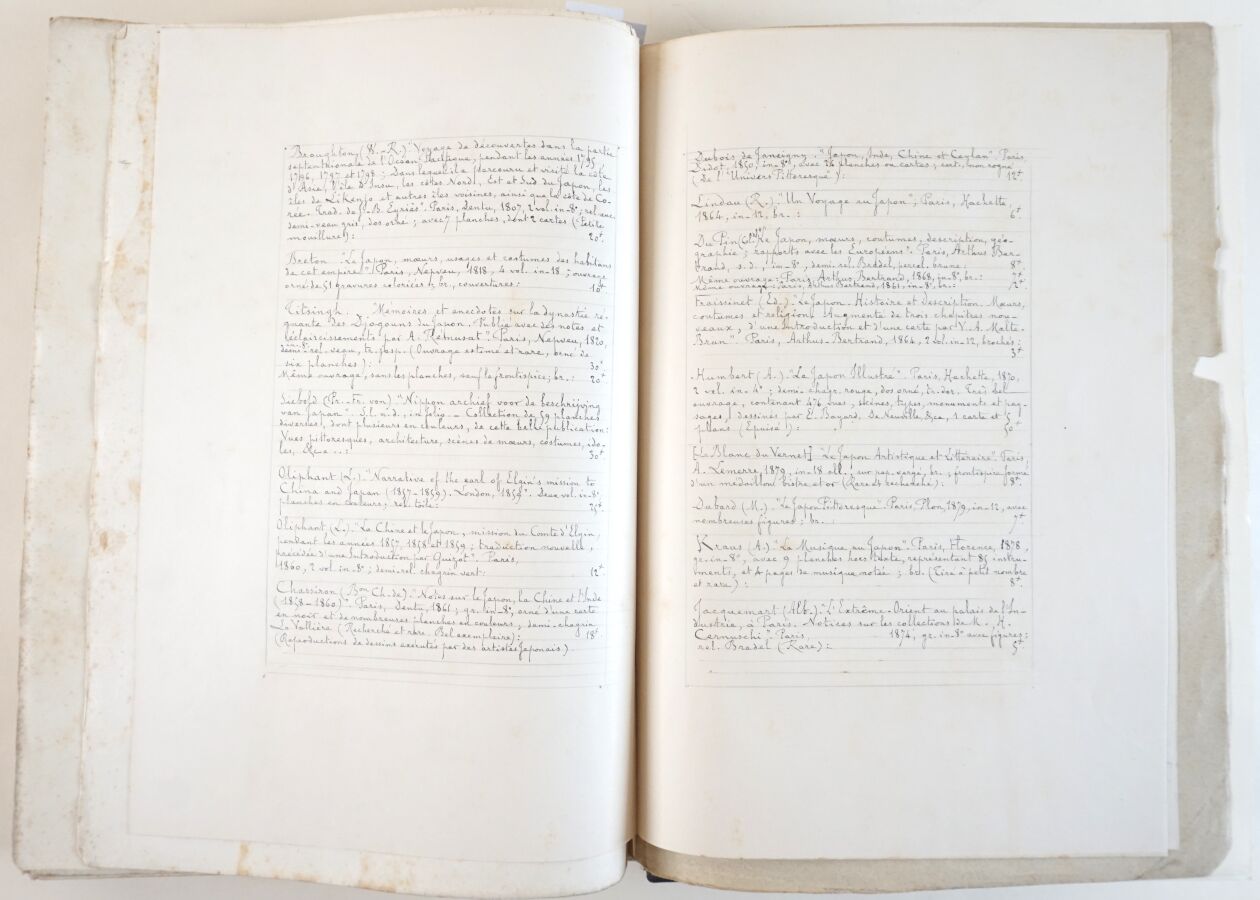 Broughton (W.-R.) "Voyage de découvertes dans la partie
septentrionale de l'Océan Pacifique, pendant les années 1795,
1796, 1797 et 1798 ; dans lequel il a parcouru et visité la côte
d'Asie, l'île d'Insu, les côtes Nord, Est et Sud du Japon, les
îles de Likenjo et autres îles voisines, ainsi que la côte de Co-
rée. Trad. de J.-B. Eyriès". Paris, Dentu, 1807, 2 vol. in-8°; rel. anc.
demi-veau gris, dos orné ; avec 7 planches, dont 2 cartes (Petite
mouillure) : 20f.
Breton. "Le Japon, mœurs, usages et costumes des habitans
de cet empire". Paris, Nepveu, 1818, 4 vol. in-18 ; ouvrage
orné de 51 gravures coloriées ; br., couvertures : 10f.
Titsingh. "Mémoires et anecdotes sur la dynastie ré-
gnante des Djogouns du Japon. Publié avec des notes et
éclaircissements par A. Rémusat". Paris, Nepveu, 1820,
in-8°
demi-rel. veau, tr. jasp. (Ouvrage estimé et rare, orné de
six planches) : 30f.
Même ouvrage, sans les planches, sauf la frontispice ; br. : 20f.
Siebold (Ph.-Fr. von) "Nippon archief voor de beschrijving
van Japan". S.l. n.d., in folio. - Collection de 59 planches
diverses, dont plusieurs en couleurs, de cette belle publication :
Vues pittoresques, architecture, scènes de mœurs, costumes, ido-
les, &ca ... : 30f.
Oliphant (L.) "Narrative of the earl of Elgin's mission to
China and Japan (1857-1859). London, 1859". Deux vol. in-8°,
planches en couleurs, rel. toile : 25f.
Oliphant (L.) "La Chine et le Japon, mission du Comte d'Elgin,
pendant les années 1857, 1858 et 1859 ; traduction nouvelle,
précédée d'une Introduction par Guizot". Paris,
1860, 2 vol. in-8° ; demi-rel. chagrin vert. 12f.
Chassiron (Bon Ch. de) "Notes sur le Japon, la Chine et l'Inde
(1858-1860)". Paris, Dentu, 1861 ; gr. in-8°, orné d'une carte
en noir et de nombreuses planches en couleurs, demi-chagrin
La Vallière (Recherché et rare. Bel exemplaire) : 18f.
(Reproductions de dessins exécutés par des artistes japonais)
Dubois de Jancigny. "Japon, Inde, Chine et Ceylan". Paris,
Didot, 1850, in-8°, avec planches ou cartes ; cart., non rogné
(de l'"Univers Pittoresque") : 12f.
Lindau (R.) "Un Voyage au Japon", Paris, Hachette,
1864, in-12, br. : 6f.
Du Pin (Cel.) "Le Japon, mœurs, coutumes, description, géo-
graphie ; rapports avec les Européens". Paris, Arthus Ber-
trand, s.d., in-8°, demi-rel. Bradel, percal. brune : 8f.
Même ouvrage : Paris, Arthus Bertrand, 1868, in-8°, br. : 7f.
Même ouvrage : Paris, Arthus Bertrand, 1861, in-8°, br. :
Fraissinet (Ed.) "Le Japon. Histoire et description. Mœurs,
coutumes et religion. Augmenté de trois chapitres nou-
veaux, d'une introduction et d'une carte par V.-A. Malte-
Brun". Paris, Arthus-Bertrand, 1864, 2 vol. in-12, brochés :
3f.
Humbert (A.) "Le Japon Illustré". Paris, Hachette, 1870,
2 vol. in-4° ; demi-chagr. rouge, dos orné, tr. dor. Très bel
ouvrage, contenant 476 vues, scènes, types, monument et pay-
sages, dessinés par E. Bayard, De Neuville, &ca, 1 carte et 5
plans (Épuisé) : 50f.
[Le Blanc du Vernet] "Le Japon Artistique et Littéraire". Paris,
A. Lemerre, 1879, in-18 all., sur pap. vergé, br. ; frontispice formé
d'un médaillon bistre et or (Rare et recherché) : 8f.
Dubard (M.) "Le Japon Pittoresque". Paris, Plon, 1879, in-12, avec
nombreuses figures ; br. :
Kraus (A.) "La Musique au Japon". Paris, Florence, 1878,
gr. in-8°, avec 9 planches hors texte, représentant 85 instru-
ments, et 4 pages de musique notée ; br. (Tiré à petit nombre
et rare) : 8f.
Jacquemart (Alb.) "L'Extrême-Orient au palais de l'In-
dustrie, à Paris. Notices sur les collections de M. H.
Cernuschi". Paris, 1874, gr. in-8° avec figures ;
rel. Bradel (Rare) : 5f.